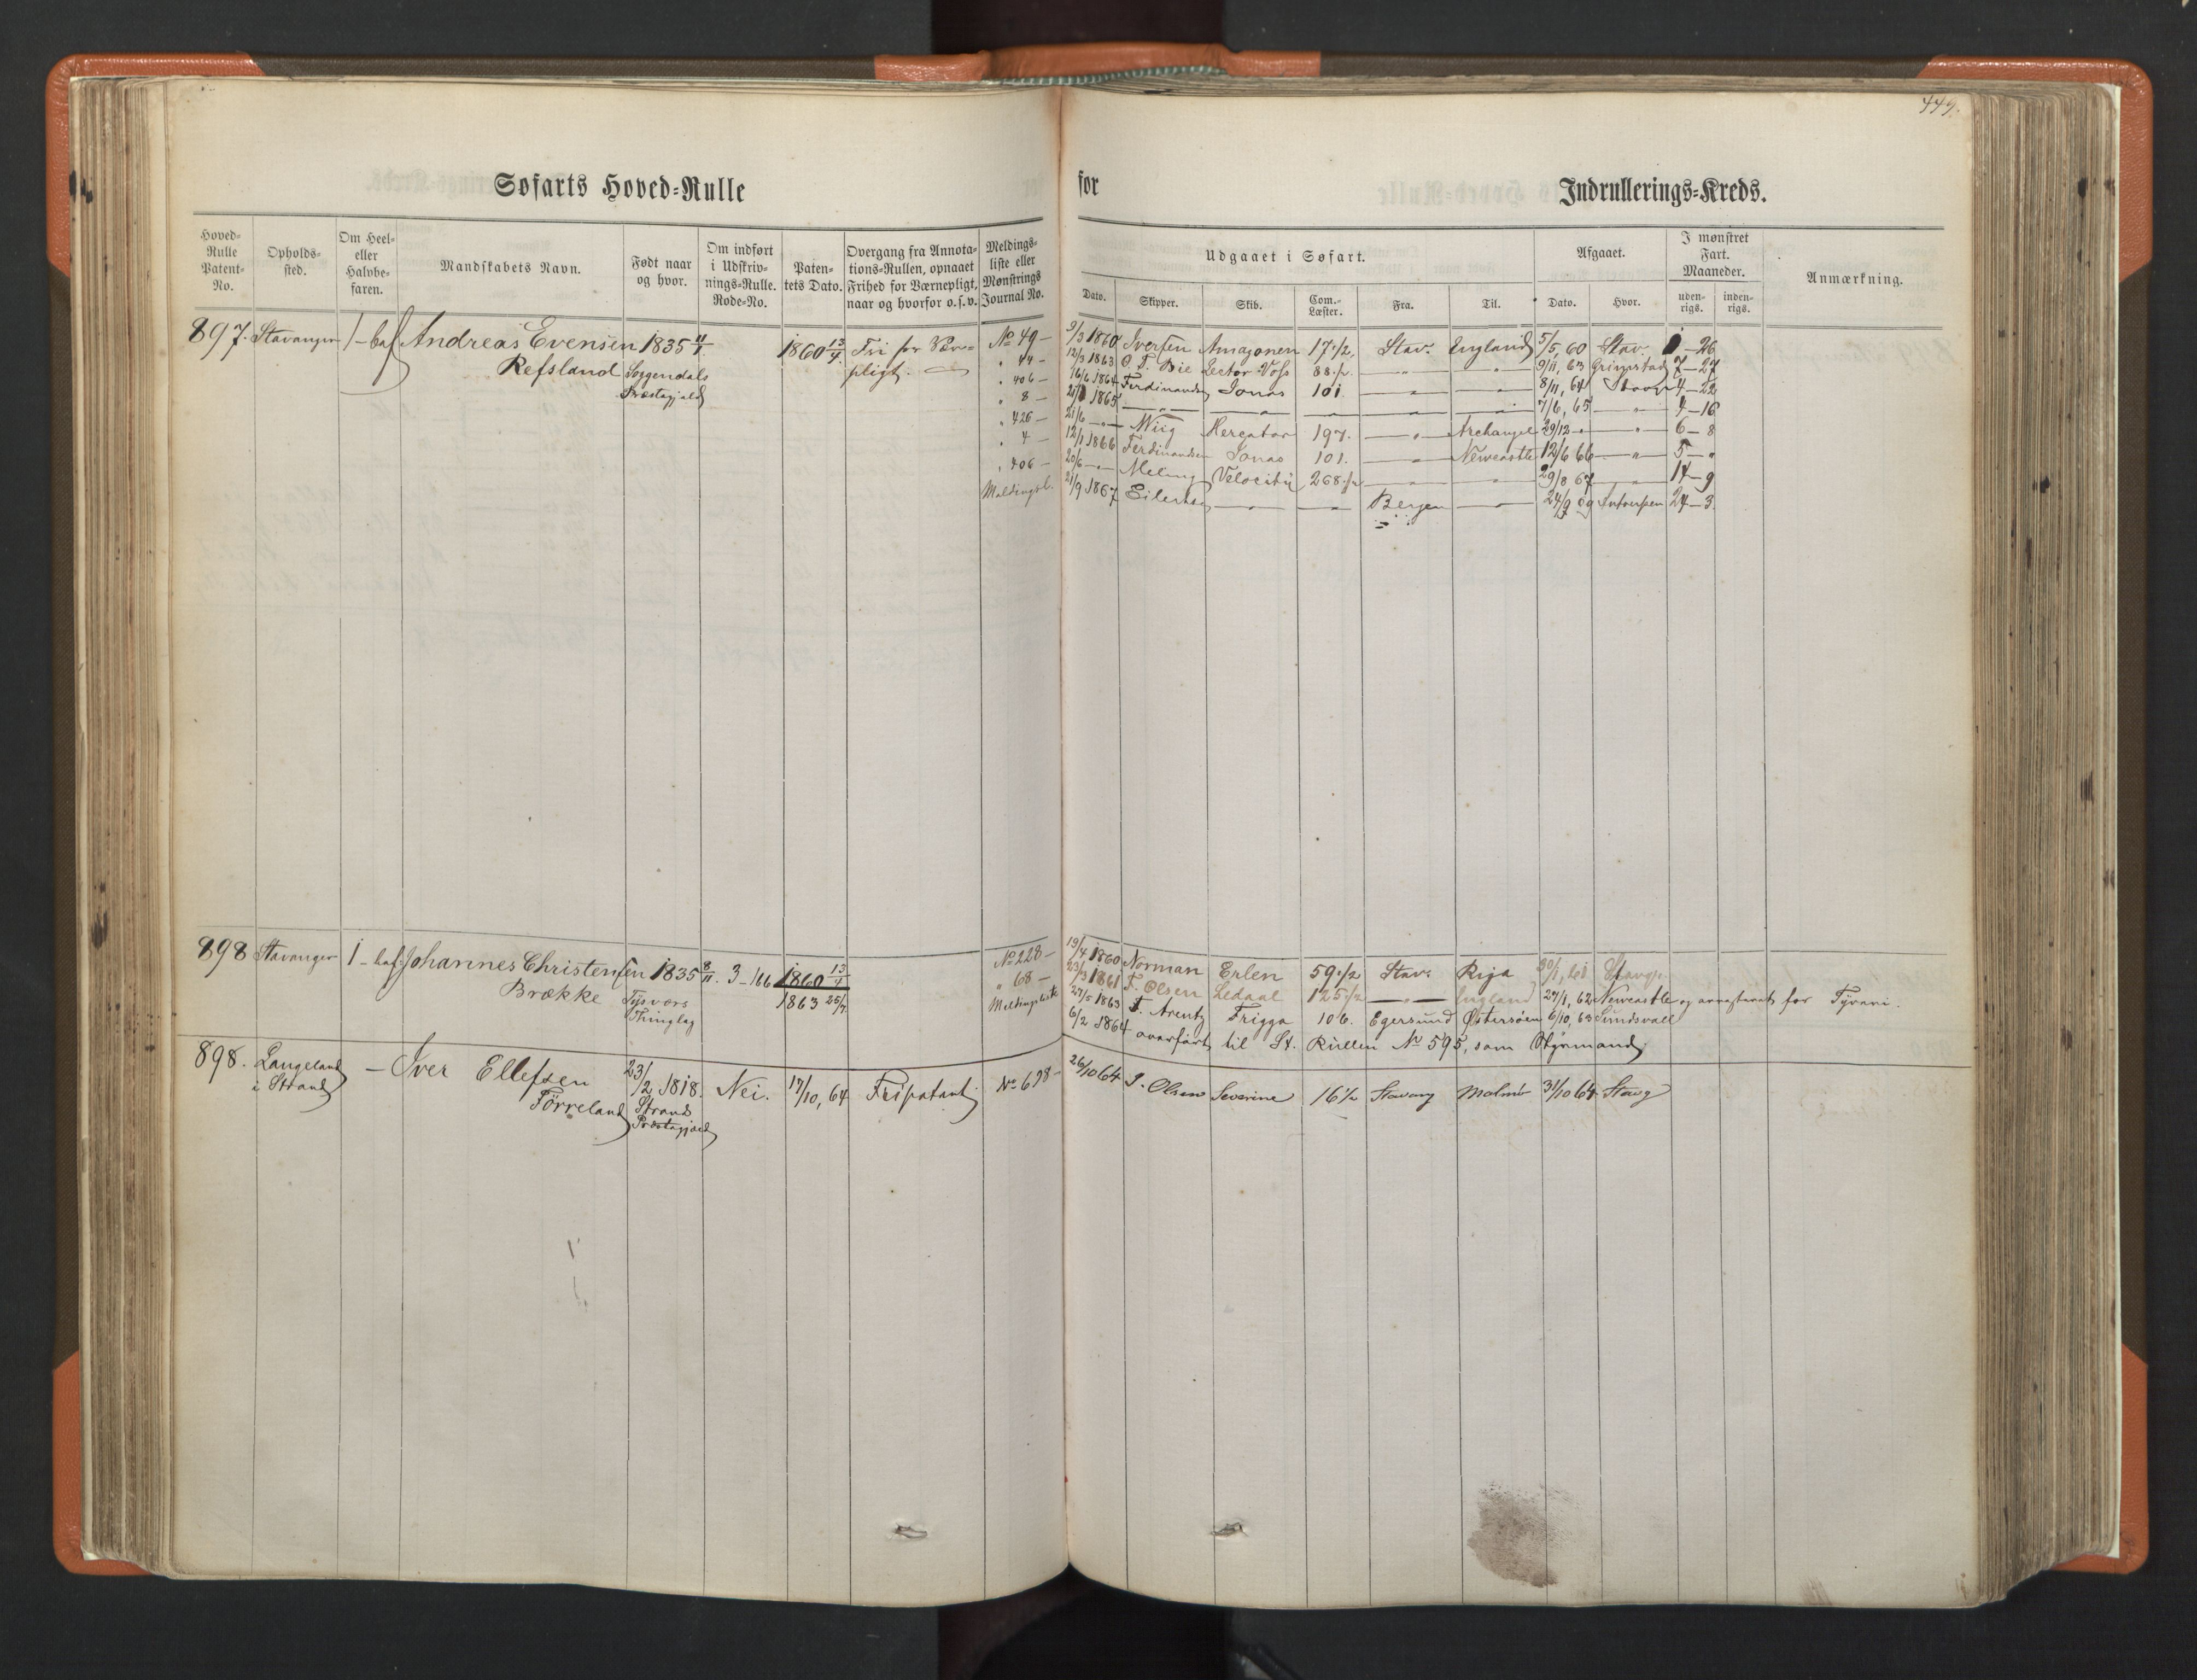 449.
Søfarts Hoved-Rulle for Indrullerings-Kreds.
Hoved-Rulle Patent-No. Opholds-sted. Om Heel- eller Halvbe-faren. Mandskabets Navn. Født naar og hvor. Om indført i Udskriv-nings-Rulle. Rode-No. Paten-tets Dato. Overgang fra Annota-tions-Rullen, opnaaet Frihed for Værnepligt, naar og hvorfor o.s.v. Meldings-liste eller Mønstrings Journal No. Udgaaet i Søfart. Afgaaet. I mønstret Fart. Maaneder. Anmærkning.
Dato. Skipper. Skib. Com.-Læster. Fra. Til. Dato. Hvor. uden-rigs. inden-rigs.
897. Stavanger 1-bef Andreas Evensen 1835 11/1 1860 13/4 Fri for Vær- No 49 — 9/3 1860 Iversen Amazonen 17 1/2 Stav. England 5/5, 60 Stav. — 26
Refsland Soggendals pligt. " 44 — 12/3 1863 O. T. Bie Lector Voss 88 1/2 — " — — " — 9/11, 63 Grimstad 7 — 27
Præstegjeld " 406 — 16/6 1864 Ferdinandsen Jonas 101. — " — — " — 8/11, 64 Stavgr 4 — 22
" 8 — 1865 — " — — " — — " — — " — — " — 7/6, 65 — " — 4 — 16
" 426 — 21/6 — " — Wiig Mercator 197. — " — Archangel 29/12 — " — " — 6 — 8
" 4 — 12/1 1866 Ferdinandsen Jonas 101. — " — Newcastle 12/6 66 — " — 5 — "
" 406 — 20/6 — " — Meling Velocity 268 1/2 — " — — " — 29/8 67 — " — 14 — 9
Meldingsl. 21/9 1867 Eilertsen — " — — " — Bergen — " — 24/9 69 Antverpen 24 — 3
898 Stavanger 1 - bef Johannes Christensen 1835 8/11. 3 - 166 1860 13/4 No 228 — 19/4 1860 Norman Erlen 59 1/2 Stav. Riga Stavgr.
Brække Tysværs 1863 25/4 " 68 — 23/3 1861 F. Olsen Ledaal 125 1/2 — " — England 27/1, 62 Newcastle og arresteret for Tyveri.
Thinglag Meldingsliste 27/5 1863 T. Arentz Frigga 106. Egersund Østersøen 6/10, 63 Sundsvall
6/2 1864 overført til St. Rullen No 595, som Styrmand
898. Langeland — Iver Ellefsen 23/2 1818. Nei. 17/10, 64 Fripatent No 698 — 26/10 64 J. Olsen Severine 16 1/2 Stavang Malmö 31/10 64 Stavg
i Strand Förreland Strands
Præstegjeld